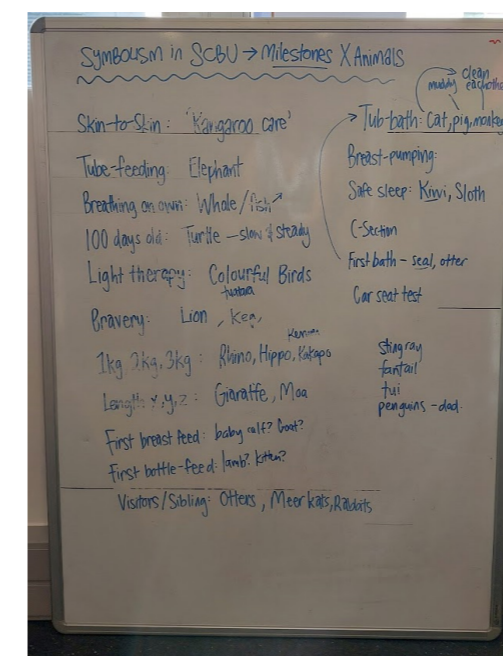 SYMBOLISM in SCBU → Milestones X Animals
Skin-to-Skin: 'Kangaroo care'
Tube-feeding: Elephant
Breathing on own: Whale/fish
100 days old: Turtle - slow & steady
Light therapy: Colourful Birds
tuatara
Bravery: Lion, Kea,
1kg, 2kg, 3kg: Rhino, Hippo, Kakapo
Length x,y,z: Giaraffe, Moa
First breast feed: baby calf? Goat?
First bottle-feed: lamb? Kitten?
Visitors/Sibling: Otters, Meerkats, Rabbits
clean
muddy
Tub-bath: Cat, pig, monkey
Breast-pumping:
Safe sleep: Kiwi, Sloth
C-Section
First bath - seal, otter
Car seat test
stingray
fantail
tui
penguins - dad